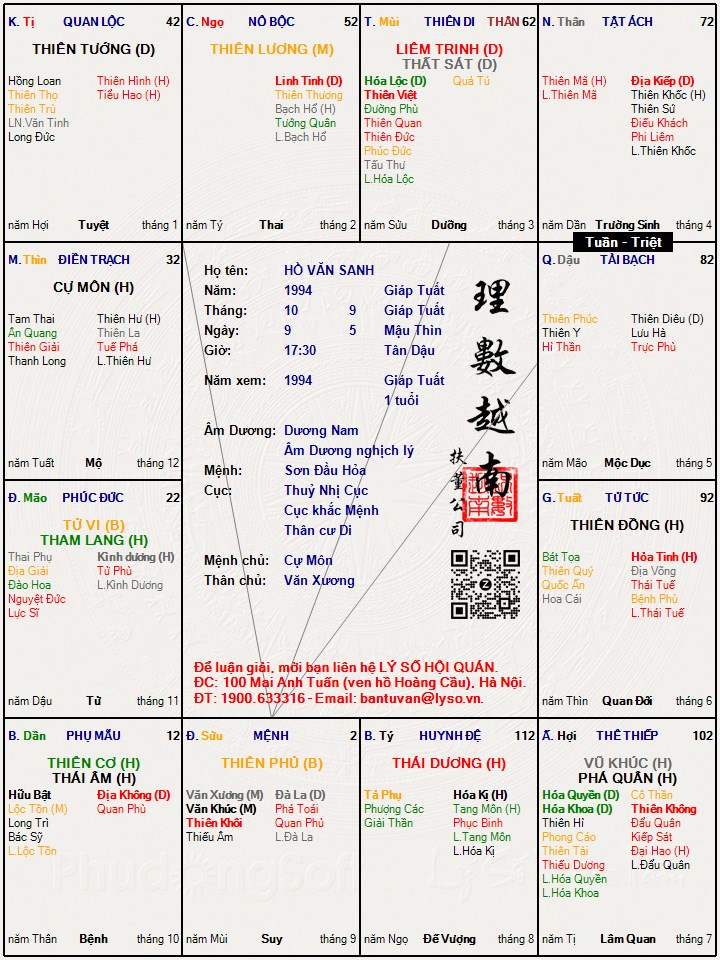 K. Tị QUAN LỘC 42
THIÊN TƯỚNG (D)
Hồng Loan Thiên Hình (H)
Thiên Thọ Tiểu Hao (H)
Thiên Trù
LN.Văn Tinh
Long Đức
năm Hợi Tuyệt tháng 1
C. Ngọ NÔ BỘC 52
THIÊN LƯƠNG (M)
Linh Tinh (D)
Thiên Thương
Bạch Hổ (H)
Tướng Quân
L.Bạch Hổ
năm Tý Thai tháng 2
T. Mùi THIÊN DI THÂN 62
LIÊM TRINH (D)
THẤT SÁT (D)
Hóa Lộc (D) Quả Tú
Thiên Việt
Đường Phù
Thiên Quan
Thiên Đức
Phúc Đức
Tấu Thư
L.Hóa Lộc
năm Sửu Dưỡng tháng 3
N. Thân TẬT ÁCH 72
Thiên Mã (H) Địa Kiếp (D)
L.Thiên Mã Thiên Khốc (H)
Thiên Sứ
Điếu Khách
Phi Liêm
L.Thiên Khốc
năm Dần Trường Sinh tháng 4
Tuần - Triệt
M. Thìn ĐIỀN TRẠCH 32
CỰ MÔN (H)
Tam Thai Thiên Hư (H)
Ân Quang Thiên La
Thiên Giải Tuế Phá
Thanh Long L.Thiên Hư
năm Tuất Mộ tháng 12
Họ tên: HỒ VĂN SANH
Năm: 1994 Giáp Tuất
Tháng: 10 9 Giáp Tuất
Ngày: 9 5 Mậu Thìn
Giờ: 17:30 Tân Dậu
Năm xem: 1994 Giáp Tuất
1 tuổi
Âm Dương: Dương Nam
Âm Dương nghịch lý
Mệnh: Sơn Đầu Hỏa
Cục: Thuỷ Nhị Cục
Cục khắc Mệnh
Thân cư Di
Mệnh chủ: Cự Môn
Thân chủ: Văn Xương
理數越南
扶董公司
Để luận giải, mời bạn liên hệ LÝ SỐ HỘI QUÁN.
ĐC: 100 Mai Anh Tuấn (ven hồ Hoàng Cầu), Hà Nội.
ĐT: 1900.633316 - Email: bantuvan@lyso.vn.
Q. Dậu TÀI BẠCH 82
Thiên Phúc Thiên Diêu (D)
Thiên Y Lưu Hà
Hỉ Thần Trực Phù
năm Mão Mộc Dục tháng 5
Đ. Mão PHÚC ĐỨC 22
TỬ VI (B)
THAM LANG (H)
Thai Phụ Kình dương (H)
Địa Giải Tử Phù
Đào Hoa L.Kình Dương
Nguyệt Đức
Lực Sĩ
năm Dậu Tử tháng 11
G. Tuất TỬ TỨC 92
THIÊN ĐỒNG (H)
Bát Tọa Hỏa Tinh (H)
Thiên Quý Địa Võng
Quốc Ấn Thái Tuế
Hoa Cái Bệnh Phù
L.Thái Tuế
năm Thìn Quan Đới tháng 6
B. Dần PHỤ MẪU 12
THIÊN CƠ (H)
THÁI ÂM (H)
Hữu Bật Địa Không (D)
Lộc Tồn (M) Quan Phù
Long Trì
Bác Sỹ
L.Lộc Tồn
năm Thân Bệnh tháng 10
Đ. Sửu MỆNH 2
THIÊN PHỦ (B)
Văn Xương (M) Đà La (D)
Văn Khúc (M) Phá Toái
Thiên Khôi Quan Phủ
Thiếu Âm L.Đà La
năm Mùi Suy tháng 9
B. Tý HUYNH ĐỆ 112
THÁI DƯƠNG (H)
Tả Phụ Hóa Kị (H)
Phượng Các Tang Môn (H)
Giải Thần Phục Binh
L.Tang Môn
L.Hóa Kị
năm Ngọ Đế Vượng tháng 8
Ấ. Hợi THÊ THIẾP 102
VŨ KHÚC (H)
PHÁ QUÂN (H)
Hóa Quyền (D) Cô Thần
Hóa Khoa (D) Thiên Không
Thiên Hỉ Đẩu Quân
Phong Cáo Kiếp Sát
Thiên Tài Đại Hao (H)
Thiếu Dương L.Đẩu Quân
L.Hóa Quyền
L.Hóa Khoa
năm Tị Lâm Quan tháng 7